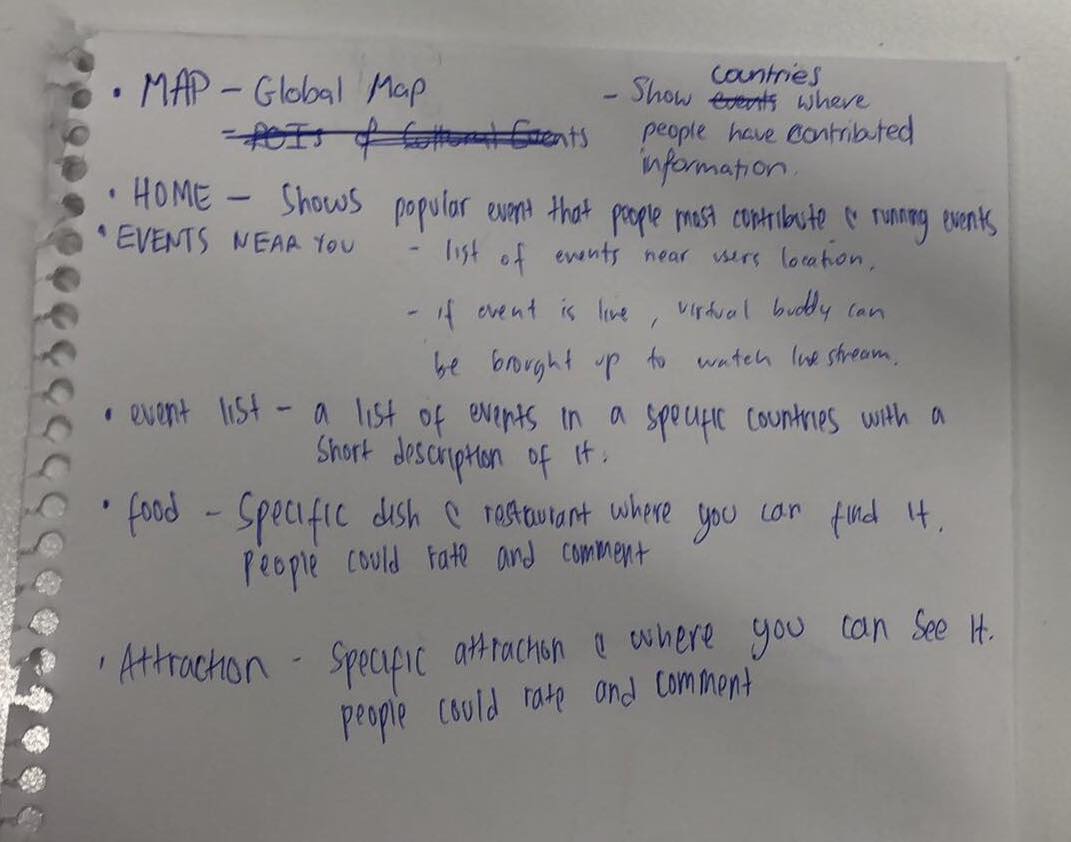 • MAP – Global Map
= POIs & Cultural Events
– Show events countries where
people have contributed
information.
• HOME – Shows popular event that people most contribute & running events
• EVENTS NEAR YOU - list of events near users location.
- if event is live, virtual buddy can
be brought up to watch live stream.
• event list – a list of events in a specific countries with a
short description of it.
• food – Specific dish & restaurant where you can find it.
people could rate and comment
• Attraction - Specific attraction & where you can see it.
people could rate and comment